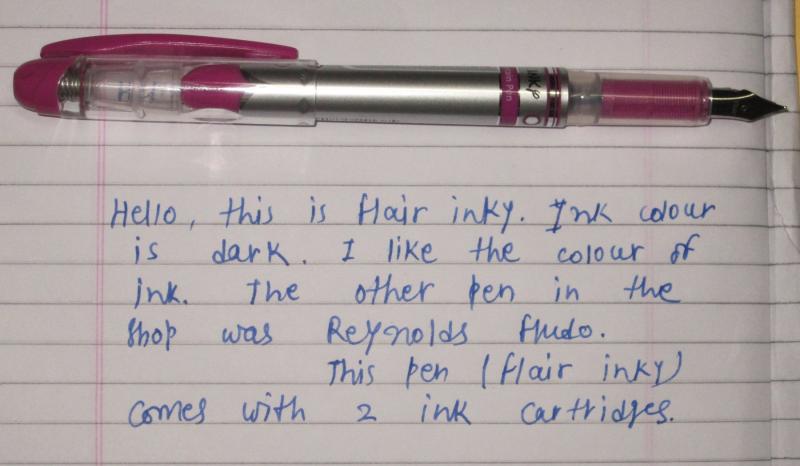 Hello, this is flair inky. Ink colour
is dark. I like the colour of
ink. The other pen in the
shop was Reynolds fludo.
This pen (flair inky)
comes with 2 ink cartridges.